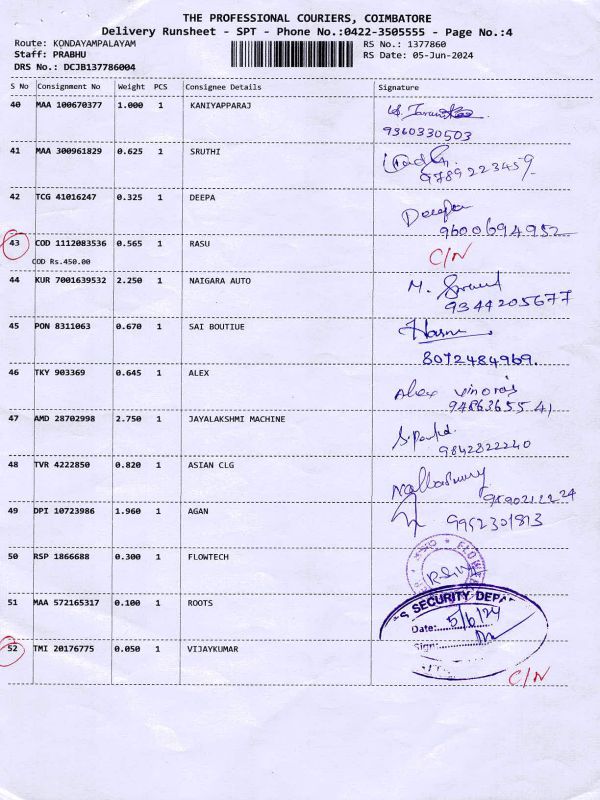 THE PROFESSIONAL COURIERS, COIMBATORE
Delivery Runsheet - SPT - Phone No.:0422-3505555 - Page No.:4
Route: KONDAYAMPALAYAM RS No.: 1377860
Staff: PRABHU RS Date: 05-Jun-2024
DRS No.: DCJB137786004
S No Consignment No Weight PCS Consignee Details Signature
40 MAA 100670377 1.000 1 KANIYAPPARAJ
9360330503
41 MAA 300961829 0.625 1 SRUTHI
9789223459
42 TCG 41016247 0.325 1 DEEPA Deepa
9600694952
43 COD 1112083536 0.565 1 RASU C/N
COD Rs.450.00
44 KUR 7001639532 2.250 1 NAIGARA AUTO M.
9344205677
45 PON 8311063 0.670 1 SAI BOUTIUE
8072484969.
46 TKY 903369 0.645 1 ALEX Alex
94863655 41
47 AMD 28702998 2.750 1 JAYALAKSHMI MACHINE
9842822240
48 TVR 4222850 0.820 1 ASIAN CLG
49 DPI 10723986 1.960 1 AGAN
9952301813
50 RSP 1866688 0.300 1 FLOWTECH
51 MAA 572165317 0.100 1 ROOTS
SECURITY DEPA
Date: 5/6/24
Sign:
52 TMI 20176775 0.050 1 VIJAYKUMAR
C/N